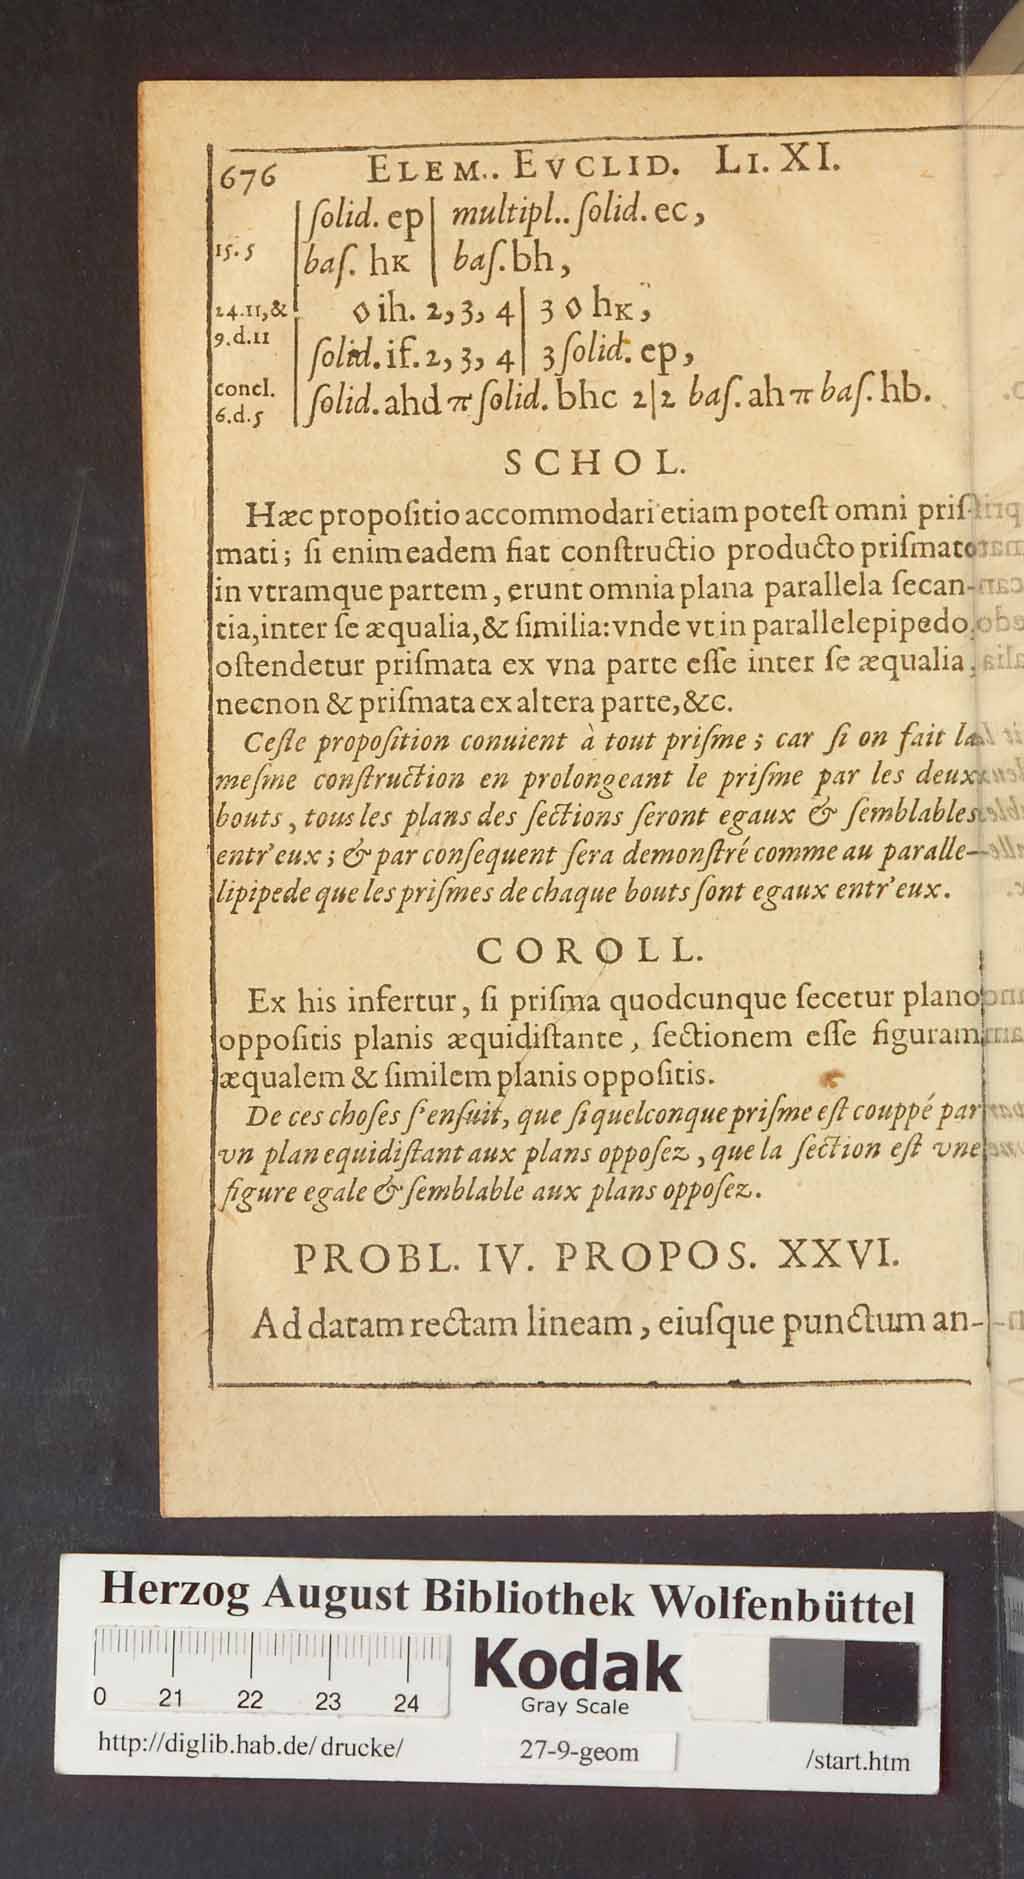 676 ELEM.. EVCLID. LI. XI.
ſolid. ep | multipl.. ſolid. ec,
15.5 baſ. hk | baſ. bh,
24.11,& ih. 2, 3, 4 | 3 hk,
9.d.11 ſolid. if. 2, 3, 4 | 3 ſolid. ep,
concl.
6.d.5 ſolid. ahd π ſolid. bhc 2|2 baſ. ah π baſ. hb.
SCHOL.
Hæc propoſitio accommodari etiam poteſt omni priſ-
mati; ſi enim eadem fiat conſtructio producto priſmate
in vtramque partem, erunt omnia plana parallela ſecan-
tia, inter ſe æqualia, & ſimilia: vnde vt in parallelepipedo,
oſtendetur priſmata ex vna parte eſſe inter ſe æqualia,
necnon & priſmata ex altera parte, &c.
Ceſte propoſition conuient à tout priſme; car ſi on fait la
meſme conſtruction en prolongeant le priſme par les deux
bouts, tous les plans des ſections ſeront egaux & ſemblables
entr'eux; & par conſequent ſera demonſtré comme au paralle-
lipipede que les priſmes de chaque bouts ſont egaux entr'eux.
COROLL.
Ex his infertur, ſi priſma quodcunque ſecetur plano
oppoſitis planis æquidiſtante, ſectionem eſſe figuram
æqualem & ſimilem planis oppoſitis.
De ces choſes ſ'enſuit, que ſi quelconque priſme eſt couppé par
vn plan equidiſtant aux plans oppoſez, que la ſection eſt vne
figure egale & ſemblable aux plans oppoſez.
PROBL. IV. PROPOS. XXVI.
Ad datam rectam lineam, eiuſque punctum an-
Herzog August Bibliothek Wolfenbüttel
0 21 22 23 24
Kodak
Gray Scale
http://diglib.hab.de/drucke/ 27-9-geom /start.htm